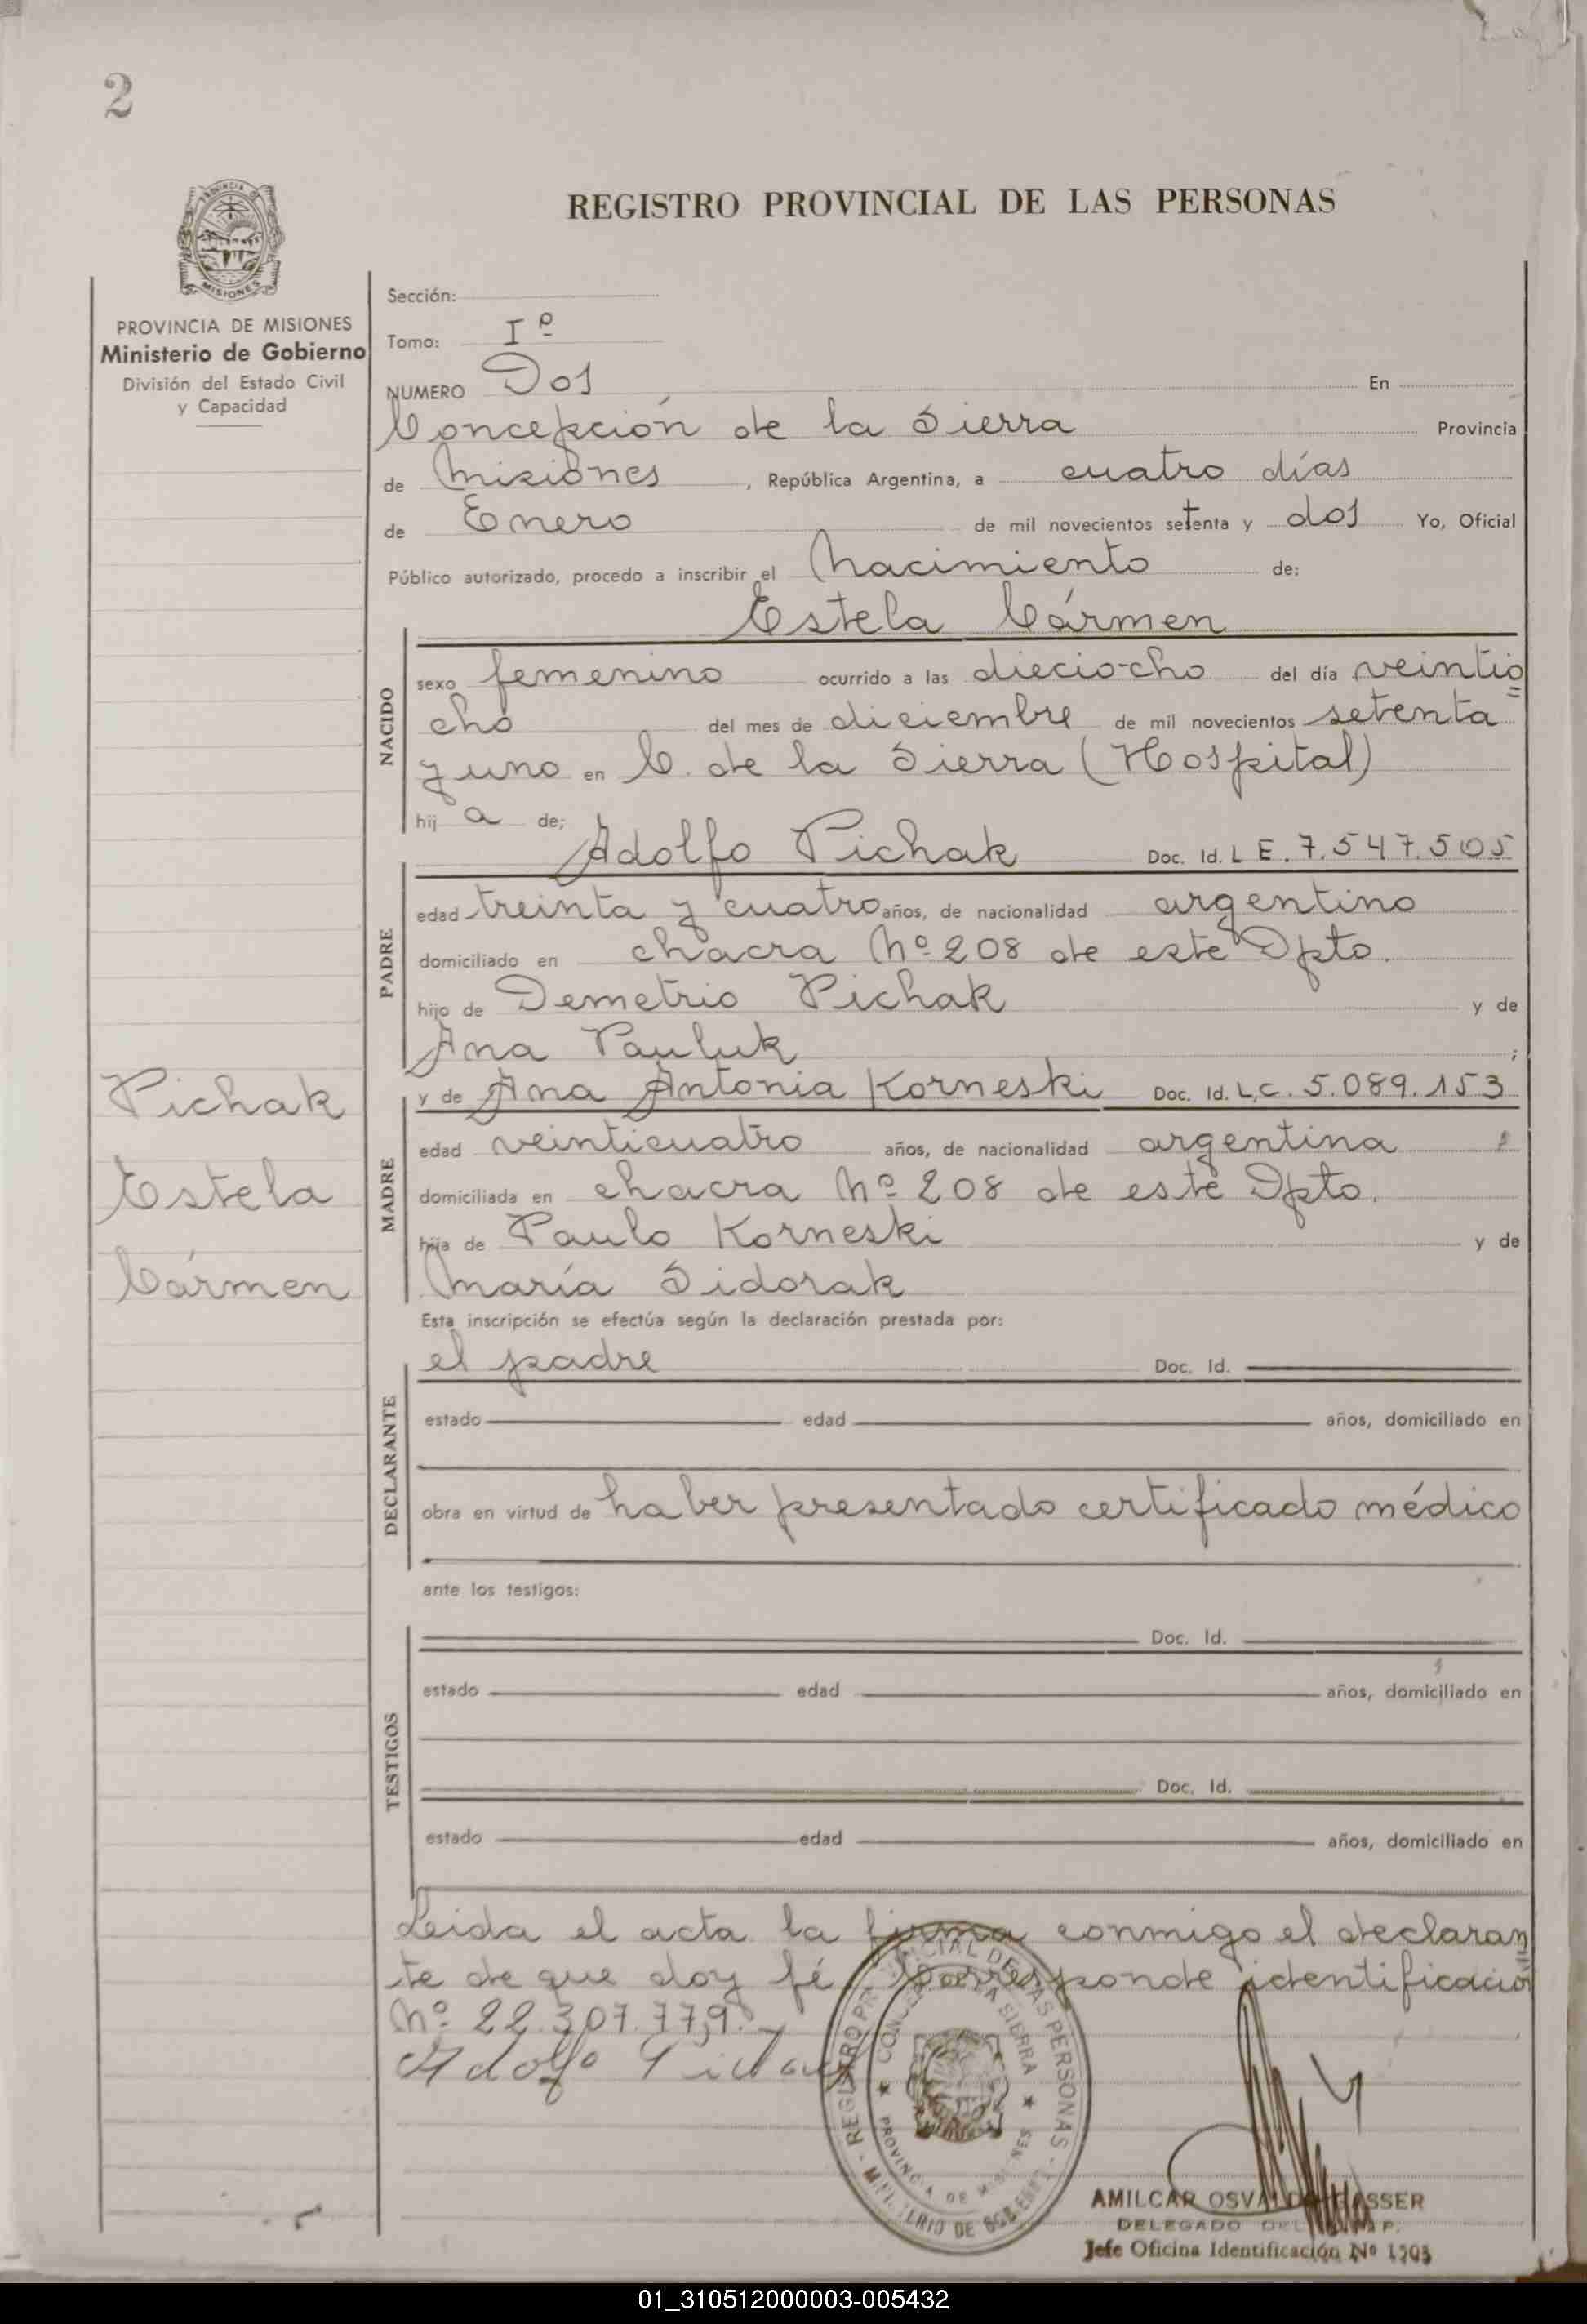 2
PROVINCIA DE MISIONES
Ministerio de Gobierno
División del Estado Civil
y Capacidad
REGISTRO PROVINCIAL DE LAS PERSONAS
Sección:
Tomo: Iº
NUMERO Dos En
Concepción de la Sierra Provincia
de Misiones , República Argentina, a cuatro días
de Enero de mil novecientos setenta y dos Yo, Oficial
Público autorizado, procedo a inscribir el Nacimiento de:
Estela Cármen
NACIDO
sexo femenino ocurrido a las dieciocho del día veintio=
cho del mes de diciembre de mil novecientos setenta
y uno en C. de la Sierra (Hospital)
hij a de;
Adolfo Pichak Doc. Id. L E. 7.547.505
PADRE
edad treinta y cuatro años, de nacionalidad argentino
domiciliado en chacra Nº 208 de este Dpto.
hijo de Demetrio Pichak y de
Ana Pauluk ;
y de Ana Antonia Korneski Doc. Id. L.C. 5.089.153
MADRE
edad veinticuatro años, de nacionalidad argentina
domiciliada en chacra Nº 208 de este Dpto.
hija de Paulo Korneski y de
María Sidorak
Pichak
Estela
Cármen
Esta inscripción se efectúa según la declaración prestada por:
DECLARANTE
el padre Doc. Id.
estado edad años, domiciliado en
obra en virtud de haber presentado certificado médico
ante los testigos:
TESTIGOS
Doc. Id.
estado edad años, domiciliado en
Doc. Id.
estado edad años, domiciliado en
Leida el acta la firma conmigo el declaran=
te de que doy fé. Corresponde identificación
Nº 22.307.779.-
Adolfo Pichak
REGISTRO PROVINCIAL DE LAS PERSONAS
CONCEPCION DE LA SIERRA
PROVINCIA DE MISIONES
MINISTERIO DE GOBIERNO
AMILCAR OSVALDO
DELEGADO DEL
Jefe Oficina Identificación Nº 1503
01_310512000003-005432